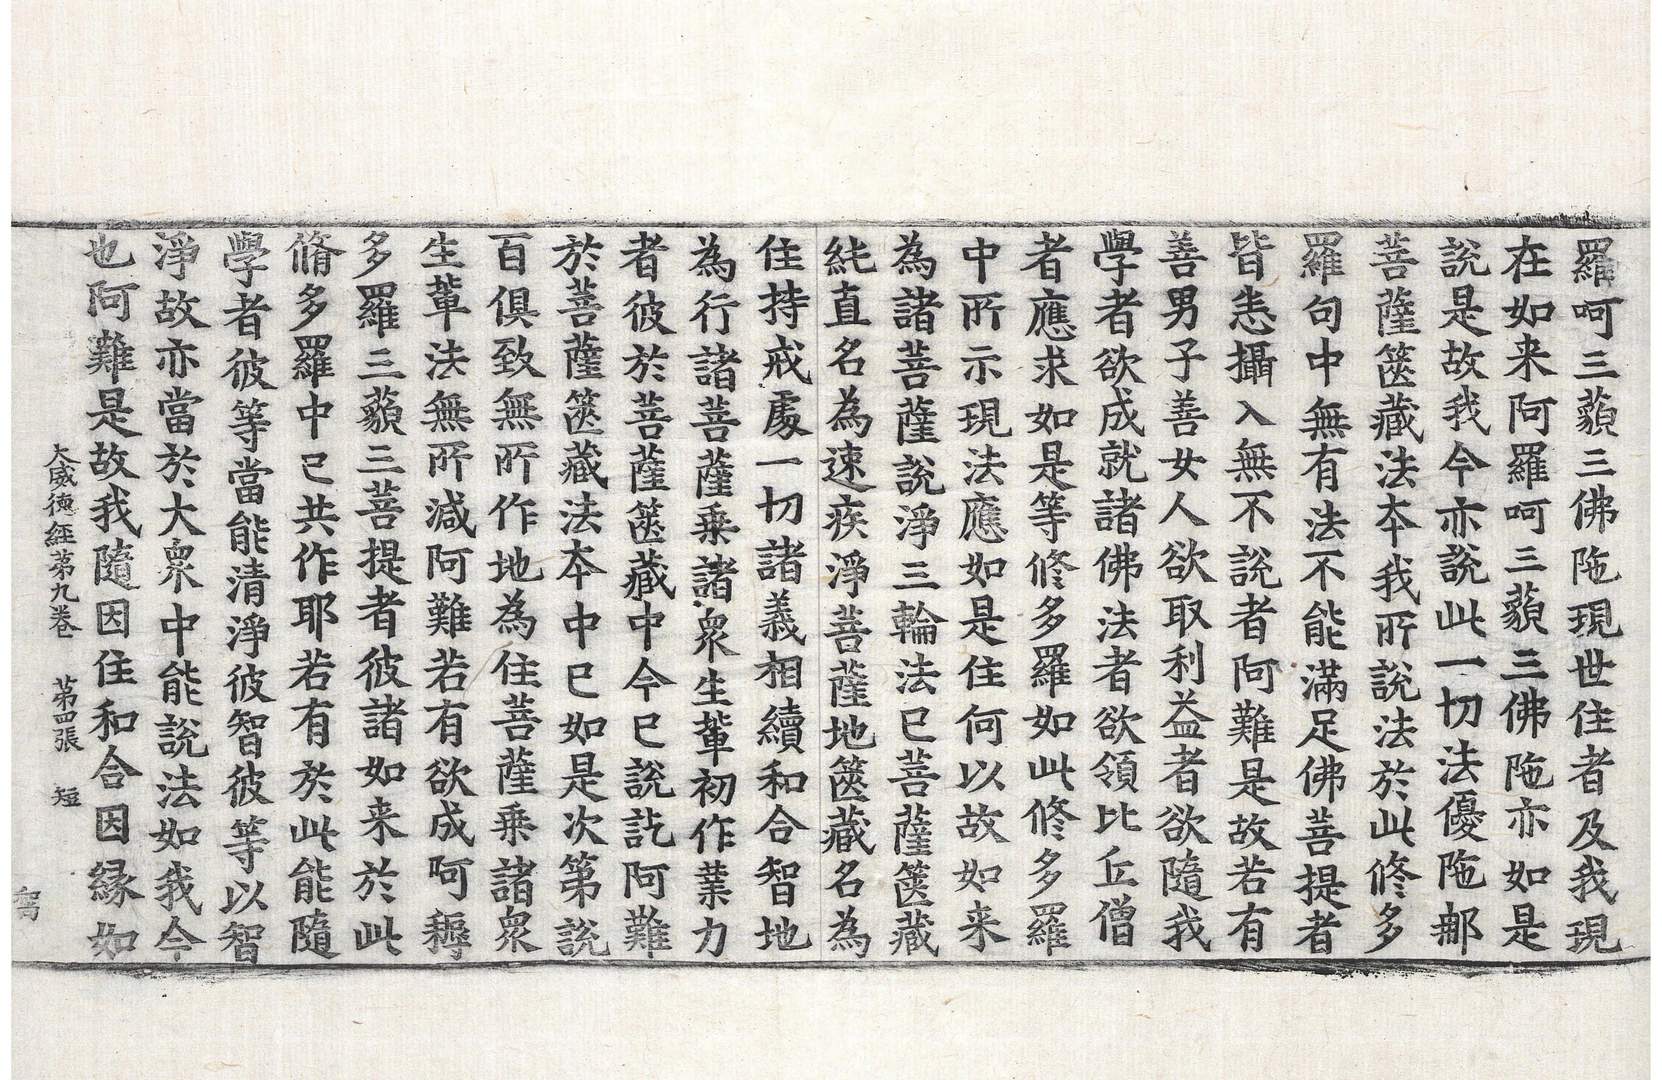 羅呵三藐三佛陁現世住者及我現
在如来阿羅呵三藐三佛陁亦如是
說是故我今亦說此一切法優陁那
菩薩篋藏法夲我所說法於此修多
羅句中無有法不能滿足佛菩提者
皆悉攝入無不說者阿難是故若有
善男子善女人欲取利益者欲隨我
學者欲成就諸佛法者欲領比丘僧
者應求如是等修多羅如此修多羅
中所示現法應如是住何以故如来
為諸菩薩說淨三輪法已菩薩篋藏
純直名為速疾淨菩薩地篋藏名為
住持戒處一切諸義相續和合智地
為行諸菩薩乘諸衆生輩初作業力
者彼於菩薩篋藏中今已說訖阿難
於菩薩篋藏法夲中已如是次第說
百俱致無所作地為住菩薩乘諸衆
生輩法無所減阿難若有欲成呵耨
多羅三藐三菩提者彼諸如来於此
脩多羅中已共作耶若有於此能隨
學者彼等當能清淨彼智彼等以智
淨故亦當於大衆中能說法如我今
也阿難是故我隨因住和合因緣如
大威德經第九卷　第四張　短